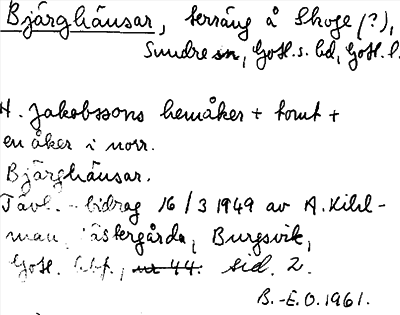 Bjärghäusar, terräng å Skoge (?),
Sundre sn, Gotl. s. hd, Gotl. l.
H. Jakobssons hemåker + tomt +
en åker i norr.
Bjärghäusar.
Tävl.-bidrag 16/3 1949 av A. Kihl-
man, Västergårda, Burgsvik,
Gotl. ~~nr 44.~~ sid. 2.
B.-E.O. 1961.